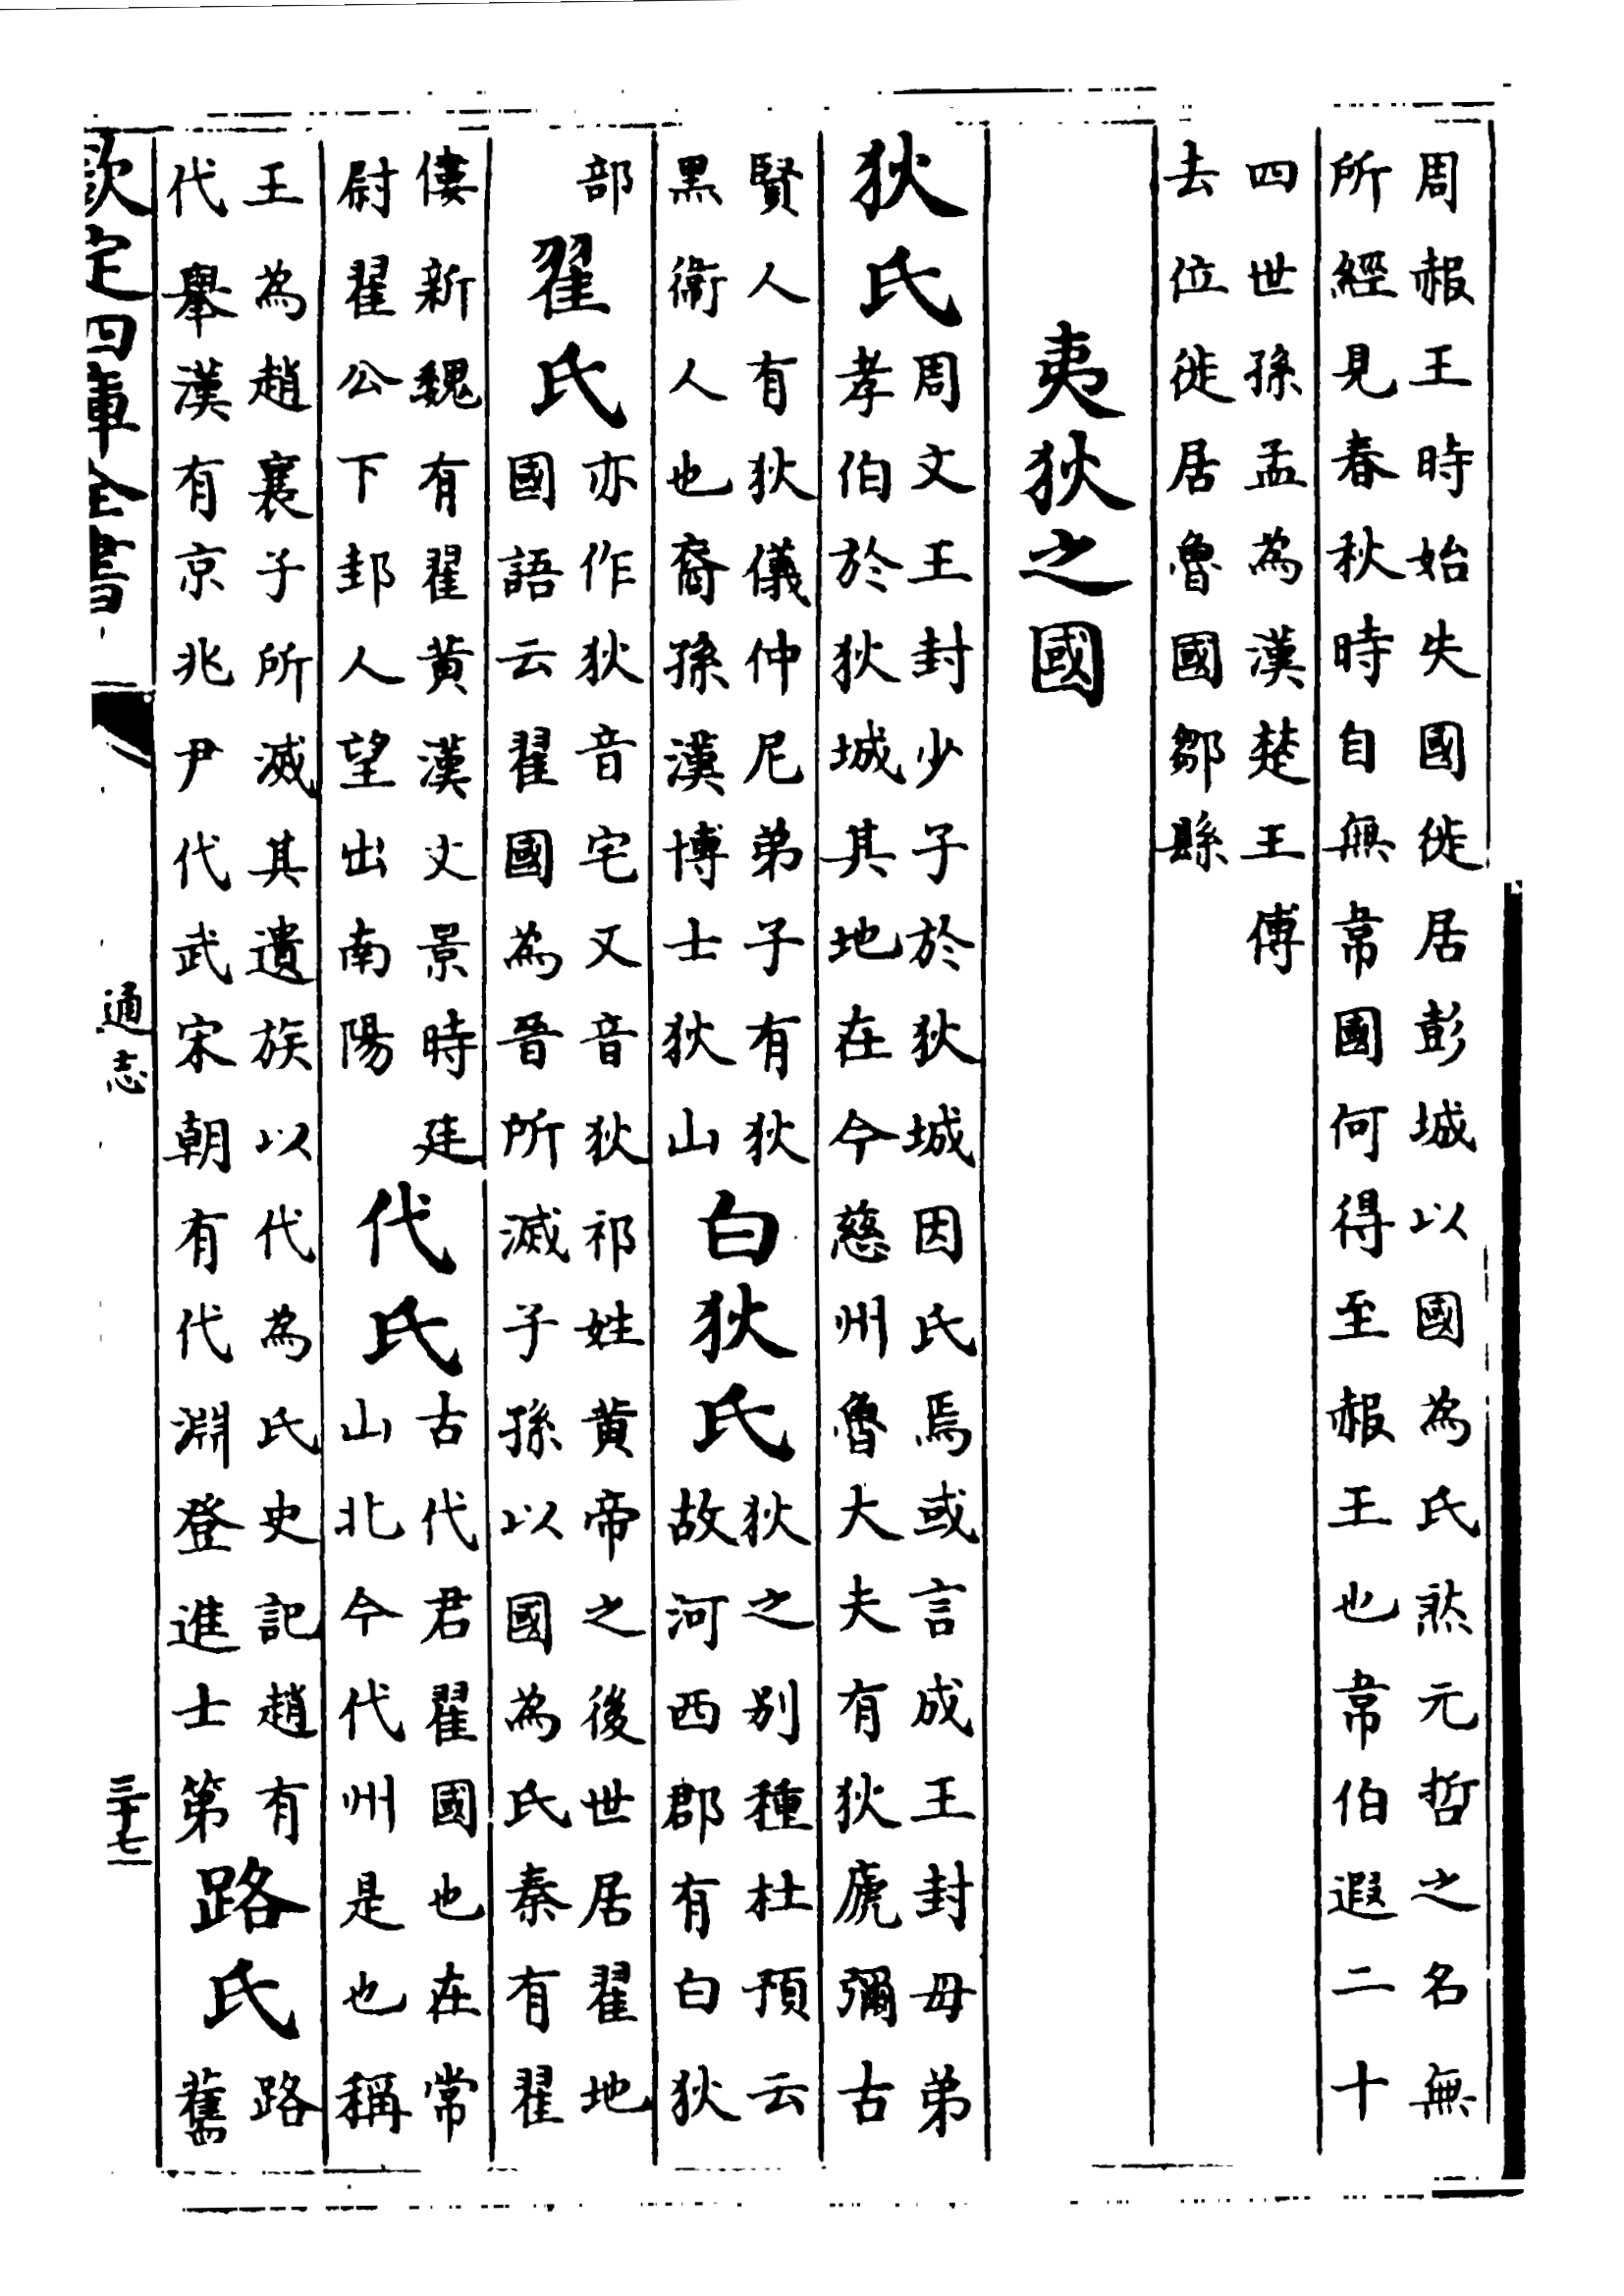 周赧王時始失國徙居彭城以國為氏然元哲之名無
所經見春秋時自無韋國何得至赧王也韋伯遐二十
四世孫孟為漢楚王傅
去位徙居魯國鄒縣
夷狄之國
狄氏
周文王封少子於狄城因氏焉或言成王封母弟
孝伯於狄城其地在今慈州魯大夫有狄虒彌古
賢人有狄儀仲尼弟子有狄
黑衞人也裔孫漢博士狄山
白狄氏
狄之别種杜預云
故河西郡有白狄
部
翟氏
亦作狄音宅又音狄祁姓黄帝之後世居翟地
國語云翟國為晉所滅子孫以國為氏秦有翟
僂新魏有翟黄漢文景時廷
尉翟公下邽人望出南陽
代氏
古代君翟國也在常
山北今代州是也稱
王為趙襄子所滅其遺族以代為氏史記趙有
代舉漢有京兆尹代武宋朝有代淵登進士第
路氏
路
舊
欽定四庫全書
通志
三十七